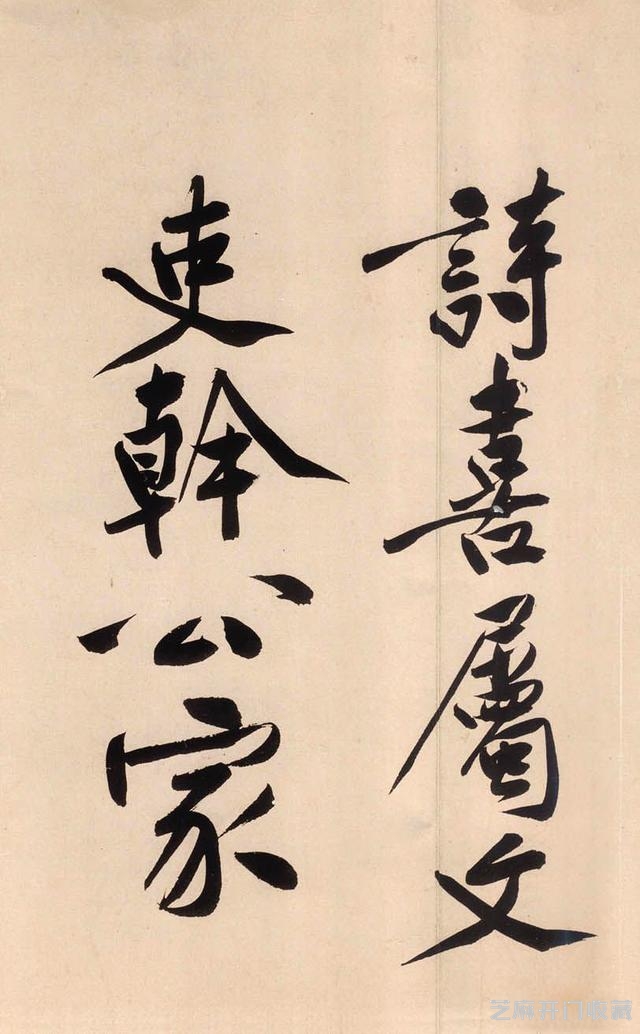 詩喜屬文
吏幹公家
芝麻开门收藏